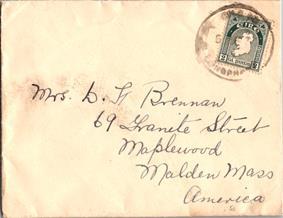 ÉIRE
2 2
Mrs. D. F. Brennan
69 Granite Street
Maplewood
Malden Mass
America